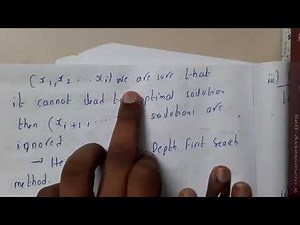 (x1, x2 ... xi) we are sure that
it cannot lead t optimal solution
then (xi+1, ... solutions are
ignored
→ He Depth First Search
method.
iii)